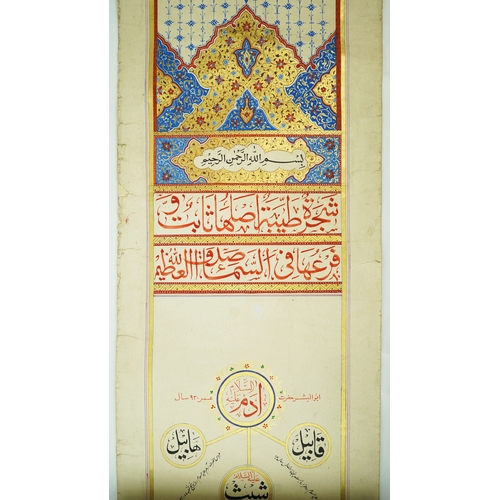 بسم الله الرحمن الرحيم
شجرة طيبة اصلها ثابت و
فرعها في السما صدق الله العظيم
ابوالبشر حضرت ادم عليه السلام عمر ٩٣٠ سال
قابيل هابيل
شيث عليه السلام